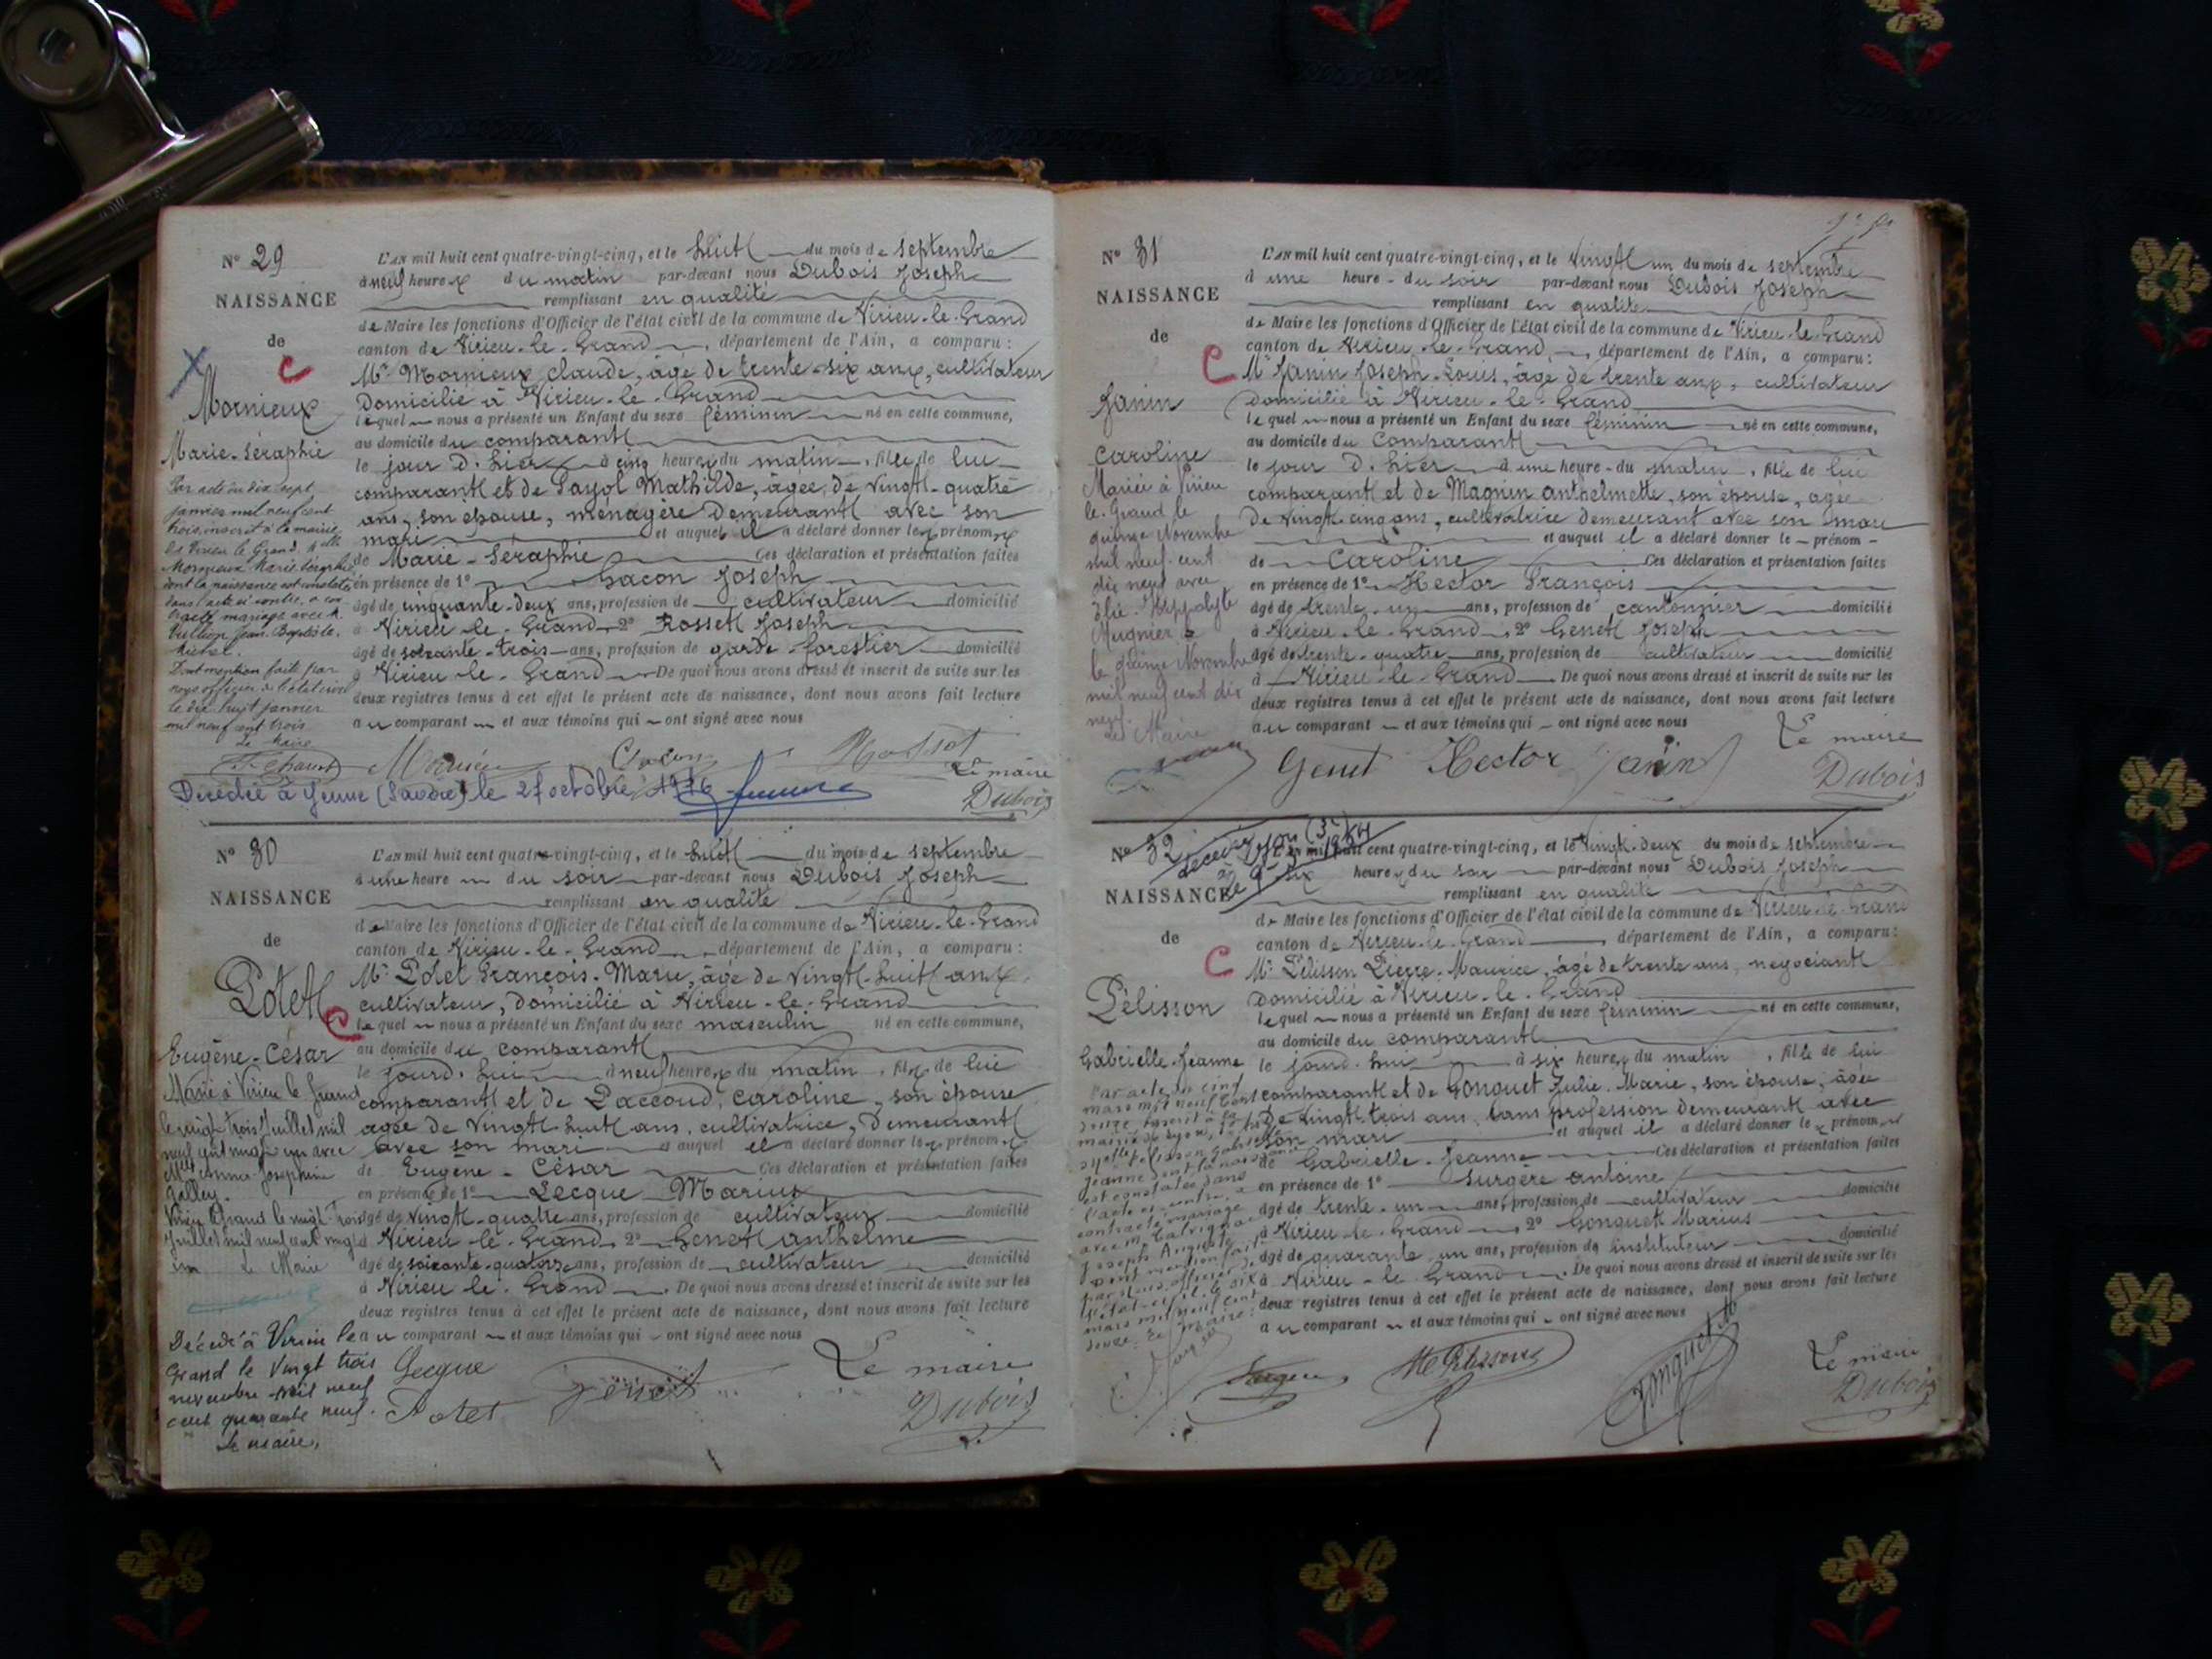 N° 29
NAISSANCE
de
C
Mornieux
Marie-Séraphie
Par acte du dix sept
janvier mil neuf cent
trois, inscrit à la mairie
de Virieu le Grand, Melle
Mornieux Marie Séraphie
dont la naissance est constatée
dans l'acte ci contre, a con
tracté mariage avec M.
Jean-Baptiste,
Michel.
Dont mention faite par
nous officier de l'état civil
le dix huit janvier
mil neuf cent trois
Le Maire
L'an mil huit cent quatre-vingt-cinq, et le huit du mois de septembre
à neuf heures du matin par-devant nous Dubois Joseph
remplissant en qualité
de Maire les fonctions d'Officier de l'état civil de la commune de Virieu-le-Grand
canton de Virieu-le-Grand, département de l'Ain, a comparu :
Mr Mornieux Claude, âgé de trente-six ans, cultivateur
Domicilié à Virieu-le-Grand
lequel nous a présenté un Enfant du sexe féminin né en cette commune,
au domicile du comparant
le jour d'hier à cinq heures du matin, fille de lui
comparant et de Payol Mathilde, âgée de vingt-quatre
ans, son épouse, ménagère demeurant avec son
mari et auquel il a déclaré donner les prénoms
de Marie-Séraphie Ces déclaration et présentation faites
en présence de 1° Gacon Joseph
âgé de cinquante-deux ans, profession de cultivateur domicilié
à Virieu-le-Grand, 2° Rosset Joseph
âgé de soixante-trois ans, profession de garde-forestier domicilié
à Virieu-le-Grand De quoi nous avons dressé et inscrit de suite sur les
deux registres tenus à cet effet le présent acte de naissance, dont nous avons fait lecture
au comparant et aux témoins qui ont signé avec nous
Le maire
Dubois
Décédée à Yenne (Savoie) le 27 octobre
N° 30
NAISSANCE
de
Potet
C
Eugène-César
Marié à Virieu le Grand
le vingt trois Juillet mil
neuf cent vingt un avec
Melle Josephine
Galley.
Virieu le Grand le vingt-trois
Juillet mil neuf cent vingt
un Le Maire
Décédé à Virieu le
Grand le vingt trois
novembre mil neuf
cent quarante neuf.
Le maire,
L'an mil huit cent quatre-vingt-cinq, et le huit du mois de septembre
à une heure du soir par-devant nous Dubois Joseph
remplissant en qualité
de Maire les fonctions d'Officier de l'état civil de la commune de Virieu-le-Grand
canton de Virieu-le-Grand, département de l'Ain, a comparu :
Mr Potet François-Marie, âgé de vingt-huit ans
cultivateur, domicilié à Virieu-le-Grand
lequel nous a présenté un Enfant du sexe masculin né en cette commune,
au domicile du comparant
le jourd'hui à neuf heures du matin, fils de lui
comparant et de Paccoud, Caroline, son épouse
âgée de vingt-huit ans, cultivatrice, demeurant
avec son mari et auquel il a déclaré donner les prénoms
de Eugène-César Ces déclaration et présentation faites
en présence de 1° Lecque Marius
âgé de vingt-quatre ans, profession de cultivateur domicilié
à Virieu-le-Grand, 2° Genet Anthelme
âgé de soixante-quatorze ans, profession de cultivateur domicilié
à Virieu-le-Grand. De quoi nous avons dressé et inscrit de suite sur les
deux registres tenus à cet effet le présent acte de naissance, dont nous avons fait lecture
au comparant et aux témoins qui ont signé avec nous
Lecque
Potet
Genet
Le maire
Dubois
N° 31
NAISSANCE
de
C
Janin
Caroline
Mariée à Virieu
le-Grand le
quinze Novembre
mil neuf-cent
dix neuf avec
Elie Hippolyte
Mugnier
le quinze Novembre
mil neuf cent dix
neuf.
Le Maire
L'an mil huit cent quatre-vingt-cinq, et le vingt un du mois de septembre
à une heure du soir par-devant nous Dubois Joseph
remplissant en qualité
de Maire les fonctions d'Officier de l'état civil de la commune de Virieu-le-Grand
canton de Virieu-le-Grand, département de l'Ain, a comparu :
Mr Janin Joseph-Louis, âgé de trente ans, cultivateur
Domicilié à Virieu-le-Grand
lequel nous a présenté un Enfant du sexe féminin né en cette commune,
au domicile du Comparant
le jour d'hier à une heure du matin, fille de lui
comparant et de Magnin Anthelmette, son épouse, âgée
de vingt-cinq ans, cultivatrice demeurant avec son mari
et auquel il a déclaré donner le prénom
de Caroline Ces déclaration et présentation faites
en présence de 1° Hector François
âgé de trente-un ans, profession de cantonnier domicilié
à Virieu-le-Grand, 2° Genet Joseph
âgé de trente-quatre ans, profession de cultivateur domicilié
à Virieu-le-Grand De quoi nous avons dressé et inscrit de suite sur les
deux registres tenus à cet effet le présent acte de naissance, dont nous avons fait lecture
au comparant et aux témoins qui ont signé avec nous
Genet Hector Janin
Le maire
Dubois
N° 32
NAISSANCE
de
C
Pélisson
Gabrielle-Jeanne
Par acte du cinq
mars mil neuf cent
douze inscrit à la
mairie de Lyon,
Pélisson Gabrielle
Jeanne dont la naissance
est constatée dans
l'acte ci-contre, a
contracté mariage
avec M.
Joseph Auguste
dont mention faite
par nous officier de
l'état-civil le six
mars mil neuf cent
douze. Le maire :
L'an mil huit cent quatre-vingt-cinq, et le vingt-deux du mois de septembre
à six heures du soir par-devant nous Dubois Joseph
remplissant en qualité
de Maire les fonctions d'Officier de l'état civil de la commune de Virieu-le-Grand
canton de Virieu-le-Grand, département de l'Ain, a comparu :
Mr Pélisson Pierre-Maurice, âgé de trente ans, négociant
Domicilié à Virieu-le-Grand
lequel nous a présenté un Enfant du sexe féminin né en cette commune,
au domicile du comparant
le jourd'hui à six heures du matin, fille de lui
comparant et de Gonguet Julie-Marie, son épouse, âgée
de vingt-trois ans, sans profession demeurant avec
son mari et auquel il a déclaré donner les prénoms
de Gabrielle-Jeanne Ces déclaration et présentation faites
en présence de 1° Surgère Antoine
âgé de trente-un ans, profession de cultivateur domicilié
à Virieu-le-Grand, 2° Gonguet Marius
âgé de quarante-un ans, profession de instituteur domicilié
à Virieu-le-Grand. De quoi nous avons dressé et inscrit de suite sur les
deux registres tenus à cet effet le présent acte de naissance, dont nous avons fait lecture
au comparant et aux témoins qui ont signé avec nous
Le maire
Dubois